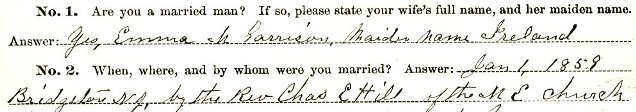 No. 1. Are you a married man? If so, please state your wife's full name, and her maiden name.
Answer: Yes, Emma M Garrison, Maiden name Ireland
No. 2. When, where, and by whom were you married? Answer: Jan 1, 1858
Bridgeton N.J, by the Rev Chas E Hill of the M E Church